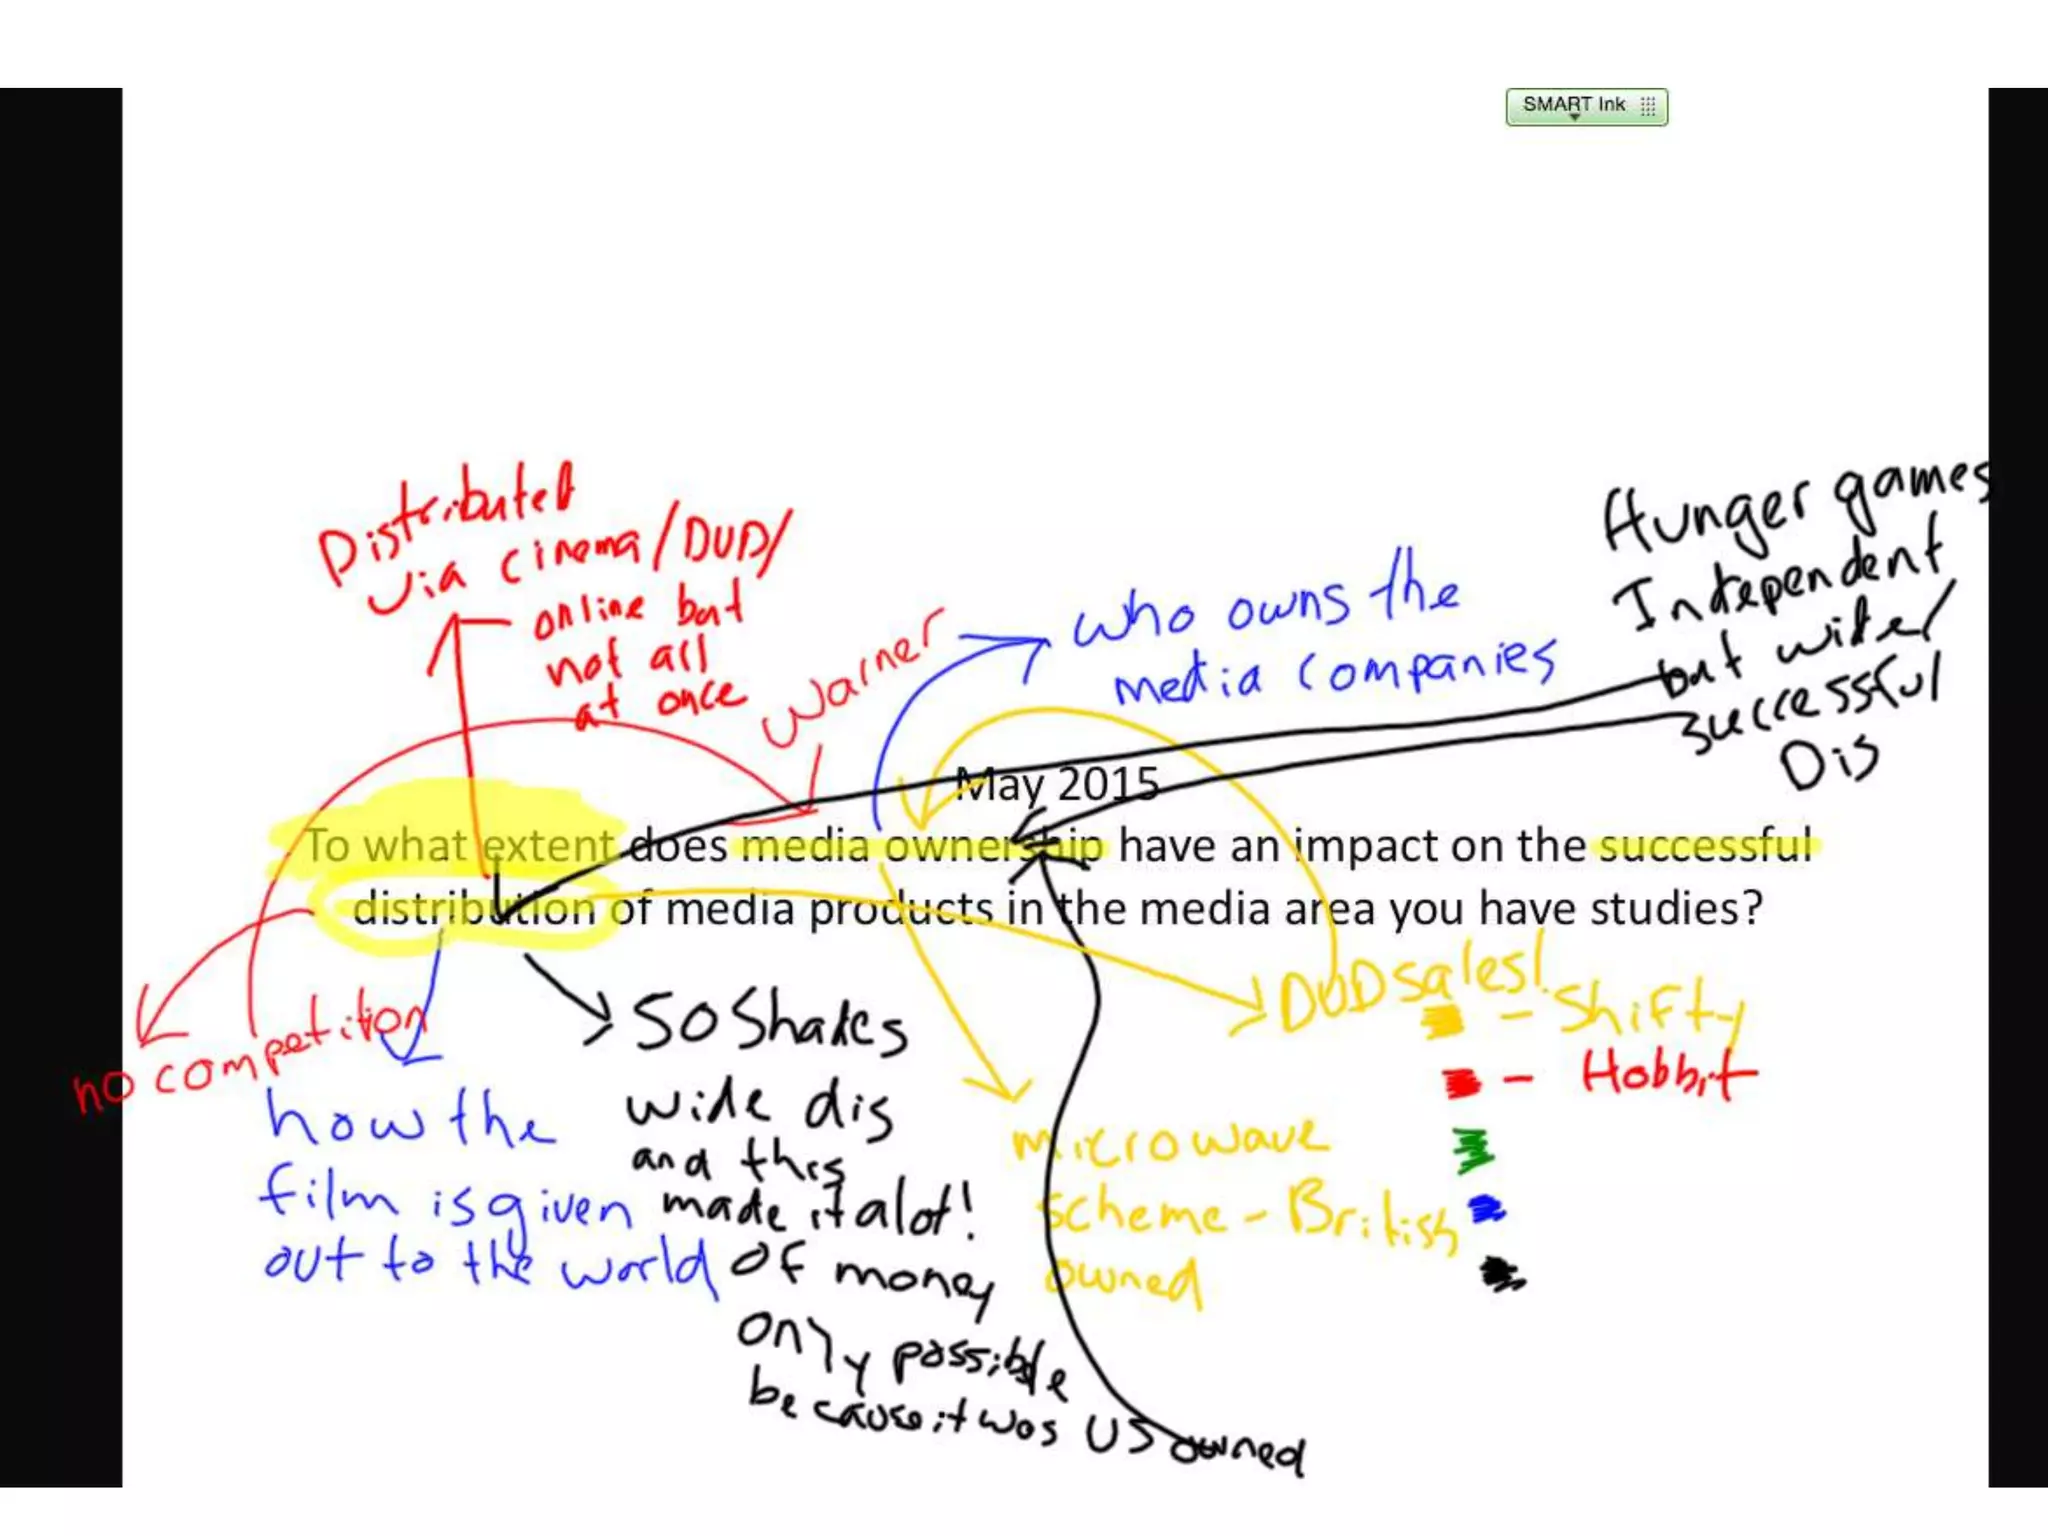 SMART Ink
Distributed
via cinema/DVD/
online but
not all
at once
Warner
who owns the
media companies
Hunger games
Independent
but wider/
successful
Dis
May 2015
To what extent does media ownership have an impact on the successful
distribution of media products in the media area you have studies?
no competition
how the
film is given
out to the world
50 Shades
wide dis
and this
made it alot!
of money
only possible
because it was US owned
microwave
scheme - British
owned
DVD sales!
- Shifty
- Hobbit